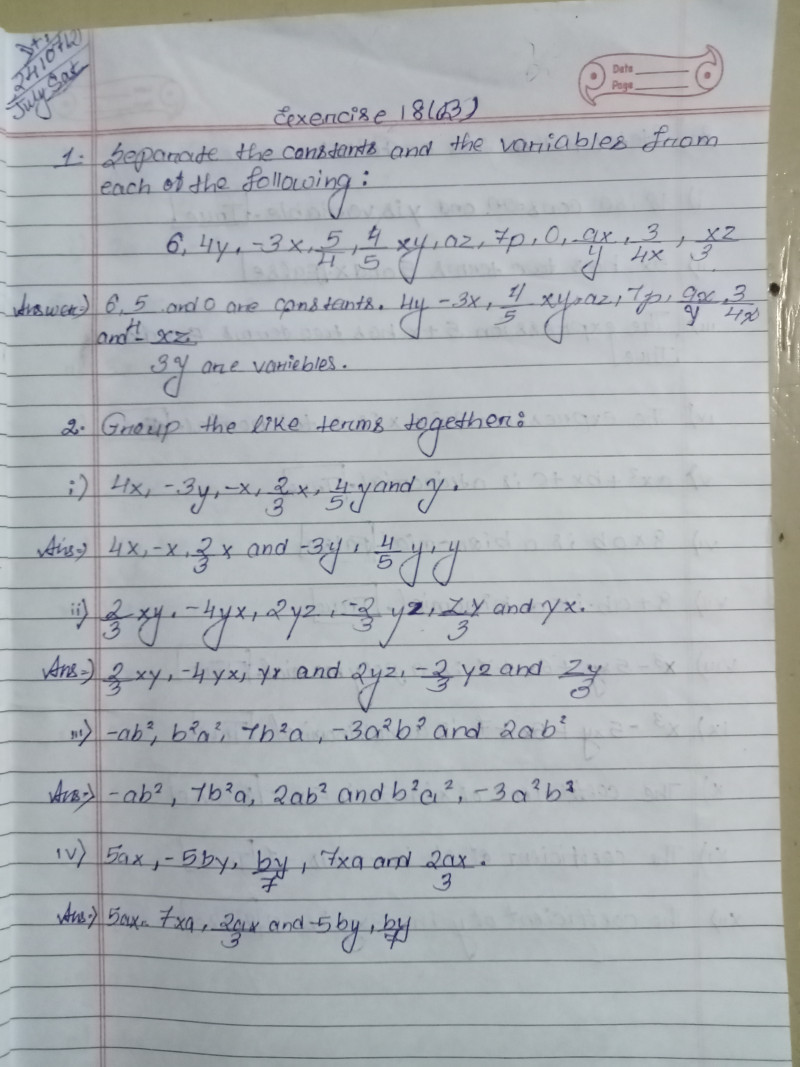 24/07/2
July Sat
Date
Page
Exercise 18(B)
1. Separate the constants and the variables from
each of the following:
6, 4y, -3x, 5/4, 4/5 xy, az, 7p, 0, 9x/y, 3/4x, xz/3
Answer:) 6, 5/4 and 0 are constants. 4y -3x, 4/5 xy, az, 7p, 9x/y, 3/4x
and - xz
3y are variebles.
2. Group the like terms together:
i) 4x, -3y, -x, 2/3 x, 4/5 y and y.
Ans:) 4x, -x, 2/3 x and -3y, 4/5 y, y
ii) 2/3 xy, -4yx, 2yz, -2/3 yz, zy/3 and yx.
Ans:) 2/3 xy, -4yx, yx and 2yz, -2/3 yz and zy/3
iii) -ab², b²a², 7b²a, -3a²b² and 2ab²
Ans:) -ab², 7b²a, 2ab² and b²a², -3a²b²
iv) 5ax, -5by, by/7, 7xa and 2ax/3.
Ans:) 5ax, 7xa, 2ax/3 and -5by, by/7